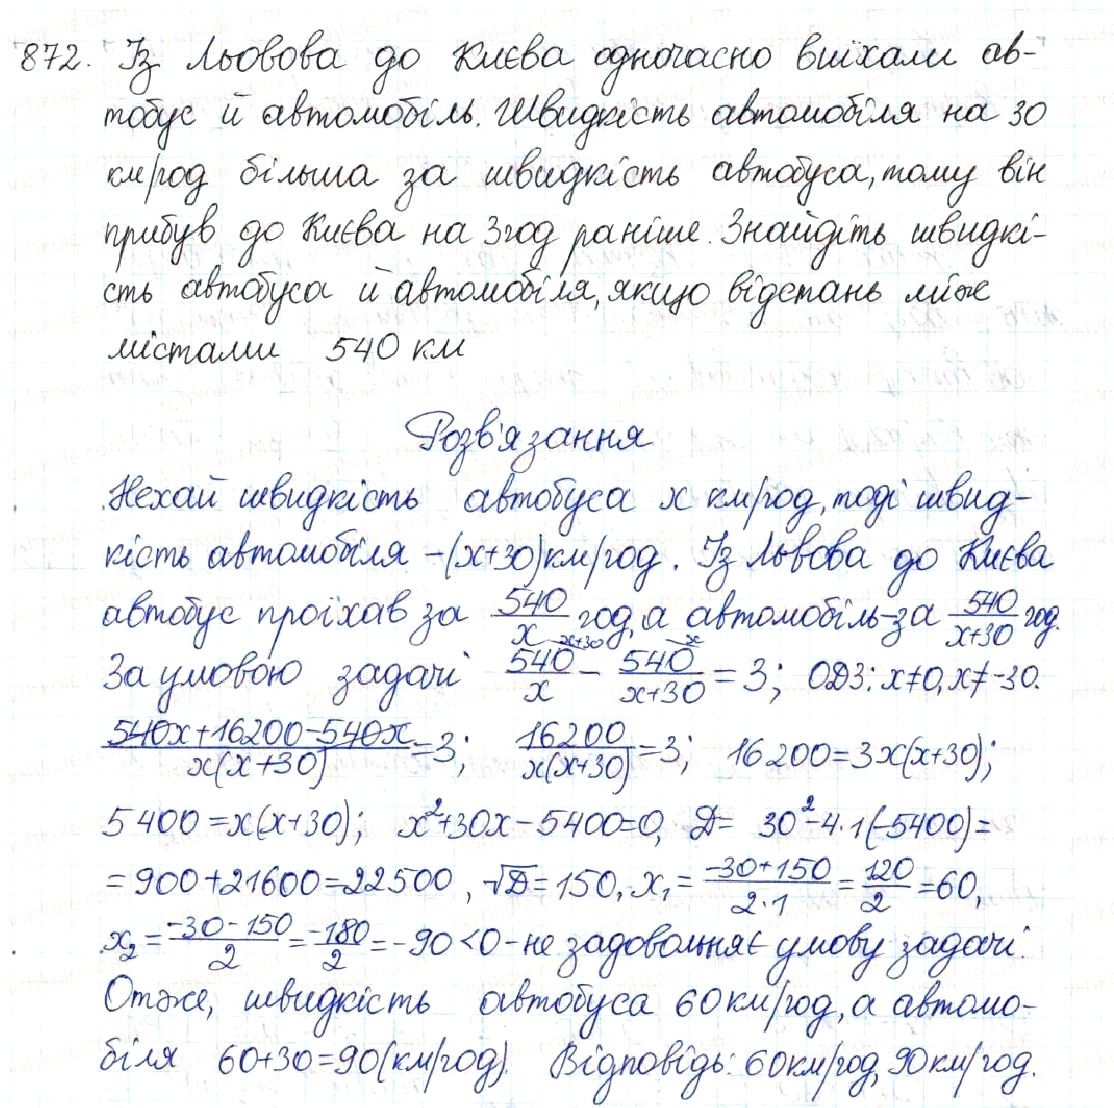 872. Із Львова до Києва одночасно виїхали ав-
тобус й автомобіль. Швидкість автомобіля на 30
км/год більша за швидкість автобуса, тому він
прибув до Києва на 3год раніше. Знайдіть швидкі-
сть автобуса й автомобіля, якщо відстань між
містами 540 км
Розв'язання
Нехай швидкість автобуса x км/год, тоді швид-
кість автомобіля -(x+30)км/год. Із Львова до Києва
автобус проїхав за 540/x год, а автомобіль-за 540/(x+30) год.
За умовою задачі 540/x (x+30) - 540/(x+30) (x) = 3; ОДЗ: x≠0, x≠-30.
(540x+16200-540x)/(x(x+30))=3; 16200/(x(x+30))=3; 16200=3x(x+30);
5400=x(x+30); x²+30x-5400=0, D= 30²-4·1(-5400)=
=900+21600=22500, √D=150, x₁=(-30+150)/(2·1)=120/2=60,
x₂=(-30-150)/2=-180/2=-90<0-не задовольняє умову задачі.
Отже, швидкість автобуса 60км/год, а автомо-
біля 60+30=90(км/год). Відповідь: 60км/год, 90км/год.